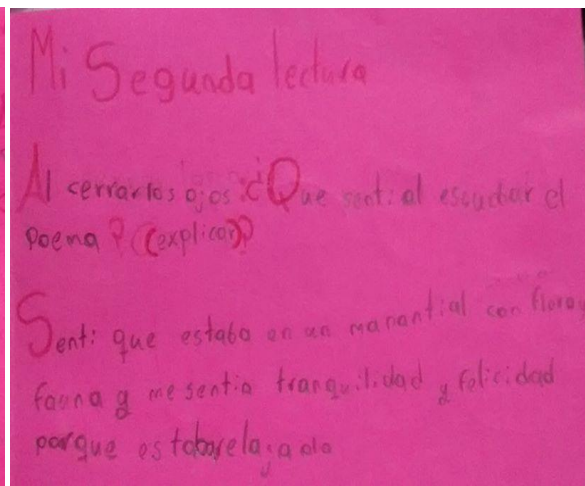 Mi Segunda lectura
Al cerrar los ojos: ¿Que senti al escuchar el
poema? (explicar)?
Senti que estaba en un manantial con flora y
fauna y me sentia tranquilidad y felicidad
porque estaba relajada